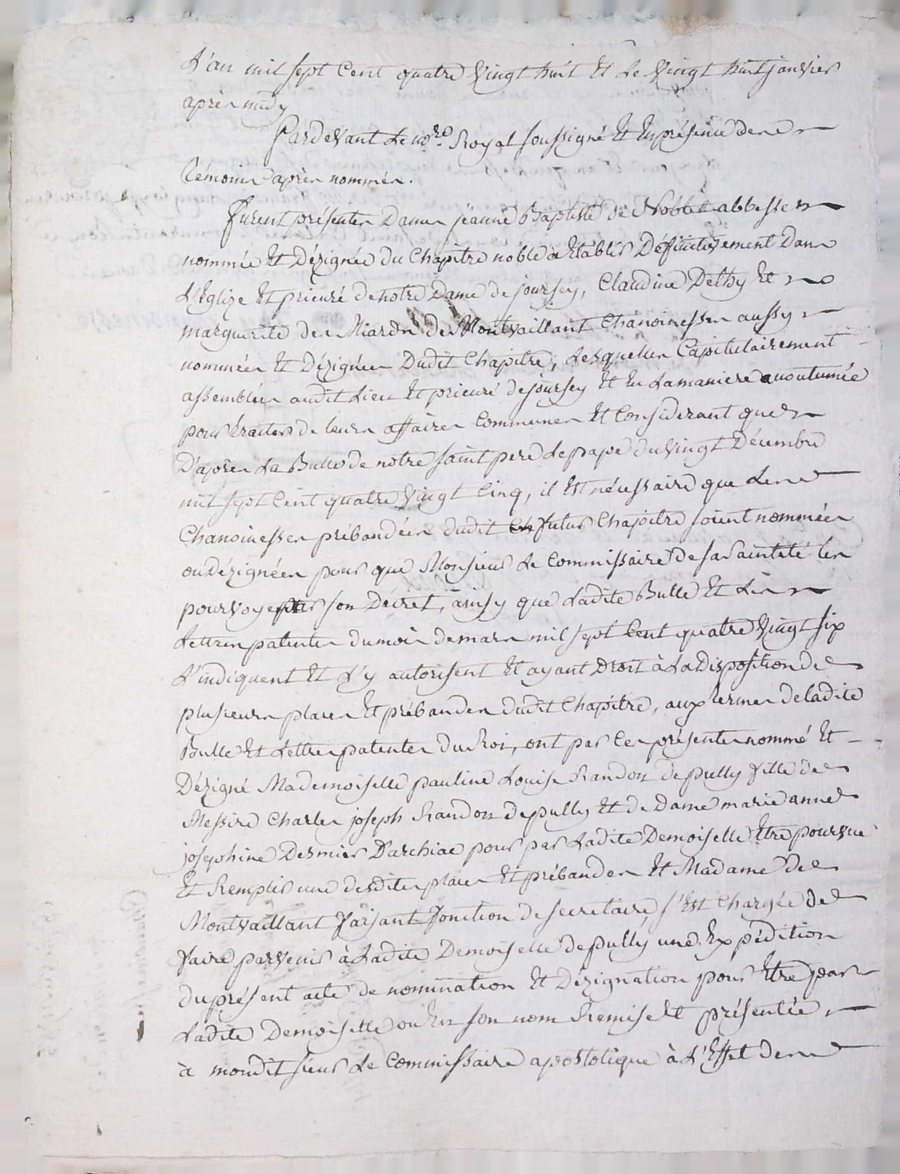 L'an mil sept cent quatre vingt huit et le vingt huit janvier
après midy
Pardevant le nore. Royal soussigné et en présence des
témoins après nommés.
Furent présentes Dames jeanne Baptiste de Noblet abbesse
nommée et Dézignée du Chapitre noble à établir Définitivement dans
L'Eglize et prieuré de notre Dame de joursey, Claudine Dethy et
marguerite des Niards de Montvaillant Chanoinesses aussy
nommées et Dézignées dudit Chapitre, Lesquelles Capitulairement
assemblées audit Lieu et prieuré de joursey et en La maniere acoutumée
pour traiter de leurs affaires Communes et Considerant que
D'après La Bulle de notre saint pere Le pape du vingt Décembre
mil sept cent quatre vingt cinq, il est nécessaire que Les
Chanoinesses prébandées dudit futur Chapitre soient nommées
ou Dezignées pour que Monsieur Le Commissaire de sa sainteté les
pourvoye par son Decret, ainsy que Ladite Bulle et Les
Lettres patentes du mois de mars mil sept cent quatre vingt six
L'indiquent et L'y autorisent et ayant Droit à La Disposition de
plusieurs places et prébandes dudit Chapitre, aux termes de ladite
Bulle et Lettres patentes du Roi, ont par ces présentes nommé et
Dézigné Mademoiselle pauline Louise Randon de pully fille de
Messire Charles joseph Randon de pully et de Dame marie anne
joséphine Desmier D'archiac pour par Ladite Demoiselle Etre pourvue
et Remplir une desdites places et prébandes et Madame De
Montvaillant faisant fonction de secretaire s'est Chargée de
faire parvenir à Ladite Demoiselle de pully une Expédition
du présent acte de nomination et Dézignation pour Etre par
Ladite Demoiselle ou en son nom Remise et présentée
à mondit sieur Le Commissaire apostolique à L'Effet de